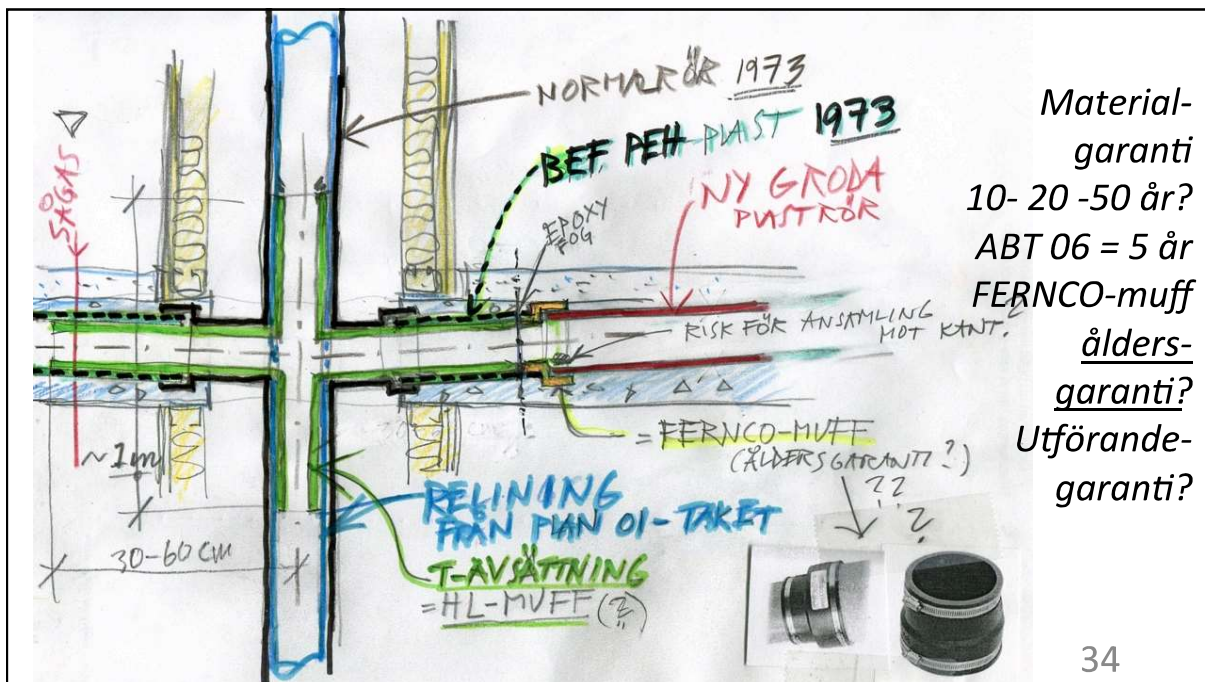 NORMALRÖR 1973
BEF PEH-PLAST 1973
NY GRODA
PLASTRÖR
EPOXY
FOG
SÅGAS
RISK FÖR ANSAMLING
MOT KANT.?
= FERNCO-MUFF
(ÅLDERSGARANTI?)
??
?
~1m
30-60 CM
RELINING
FRÅN PLAN 01-TAKET
T-AVSÄTTNING
=HL-MUFF (?)
Material-
garanti
10- 20 -50 år?
ABT 06 = 5 år
FERNCO-muff
ålders-
garanti?
Utförande-
garanti?
34